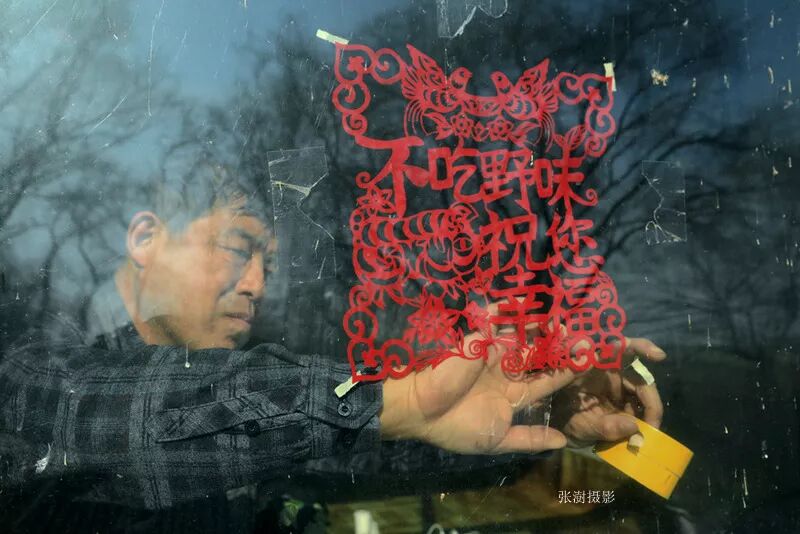 不吃野味
祝您
幸福
张澍摄影